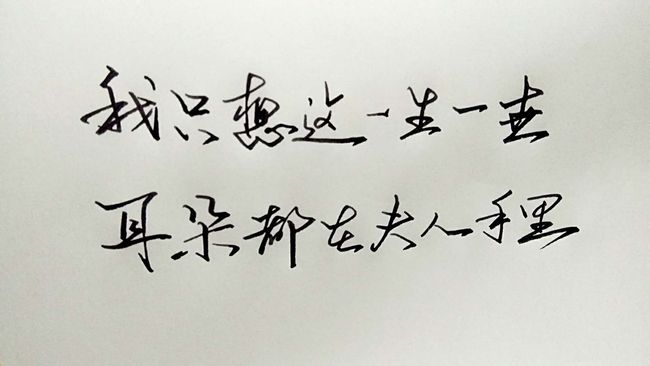 我只想这一生一世
耳朵都在夫人手里